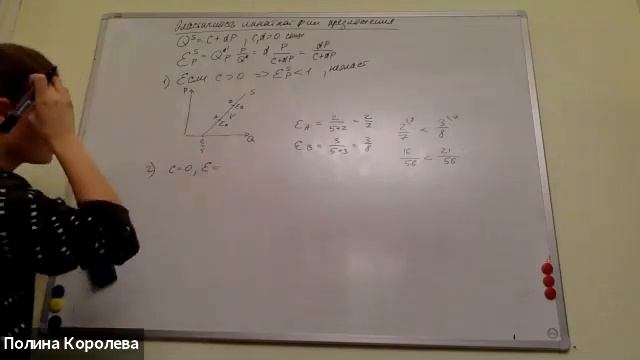 Эластичность линейной ф-ии предложения
Qˢ = c + dP, c,d > 0 const
Eₚˢ = Q'ₚ P/Qˢ = d P/(c+dP) = dP/(c+dP)
1) Если c > 0 => Eₚˢ < 1, неэласт
P
S
Q
εA = 2/(5+2) = 2/7
εB = 3/(5+3) = 3/8
2/7 < 3/8
16/56 < 21/56
2) c = 0, E =
Полина Королева